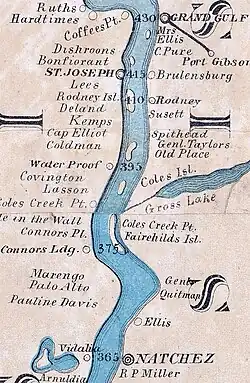 Ruths
Hardtimes
430
GRAND GULF
Coffees Pt.
Mrs
Ellis
C.Pure
Dishroons
Bonfiorant
Port Gibson
ST. JOSEPH
415
Brulensburg
Lees
Rodney Isl.
410
Rodney
Deland
Susett
Kemps
Cap Elliot
Spithead
Coldman
Genl. Taylors
Old Place
Water Proof
395
Covington
Coles Isl.
Lasson
Coles Creek Pt.
Gross Lake
le in the Wall
Coles Creek Pt.
Connors Pl.
Fairchilds Isl.
Connors Ldg.
375
Marengo
Genl
Palo Alto
Quitman
Pauline Davis
Ellis
Vidalia
365
NATCHEZ
Arnuldia
R P Miller